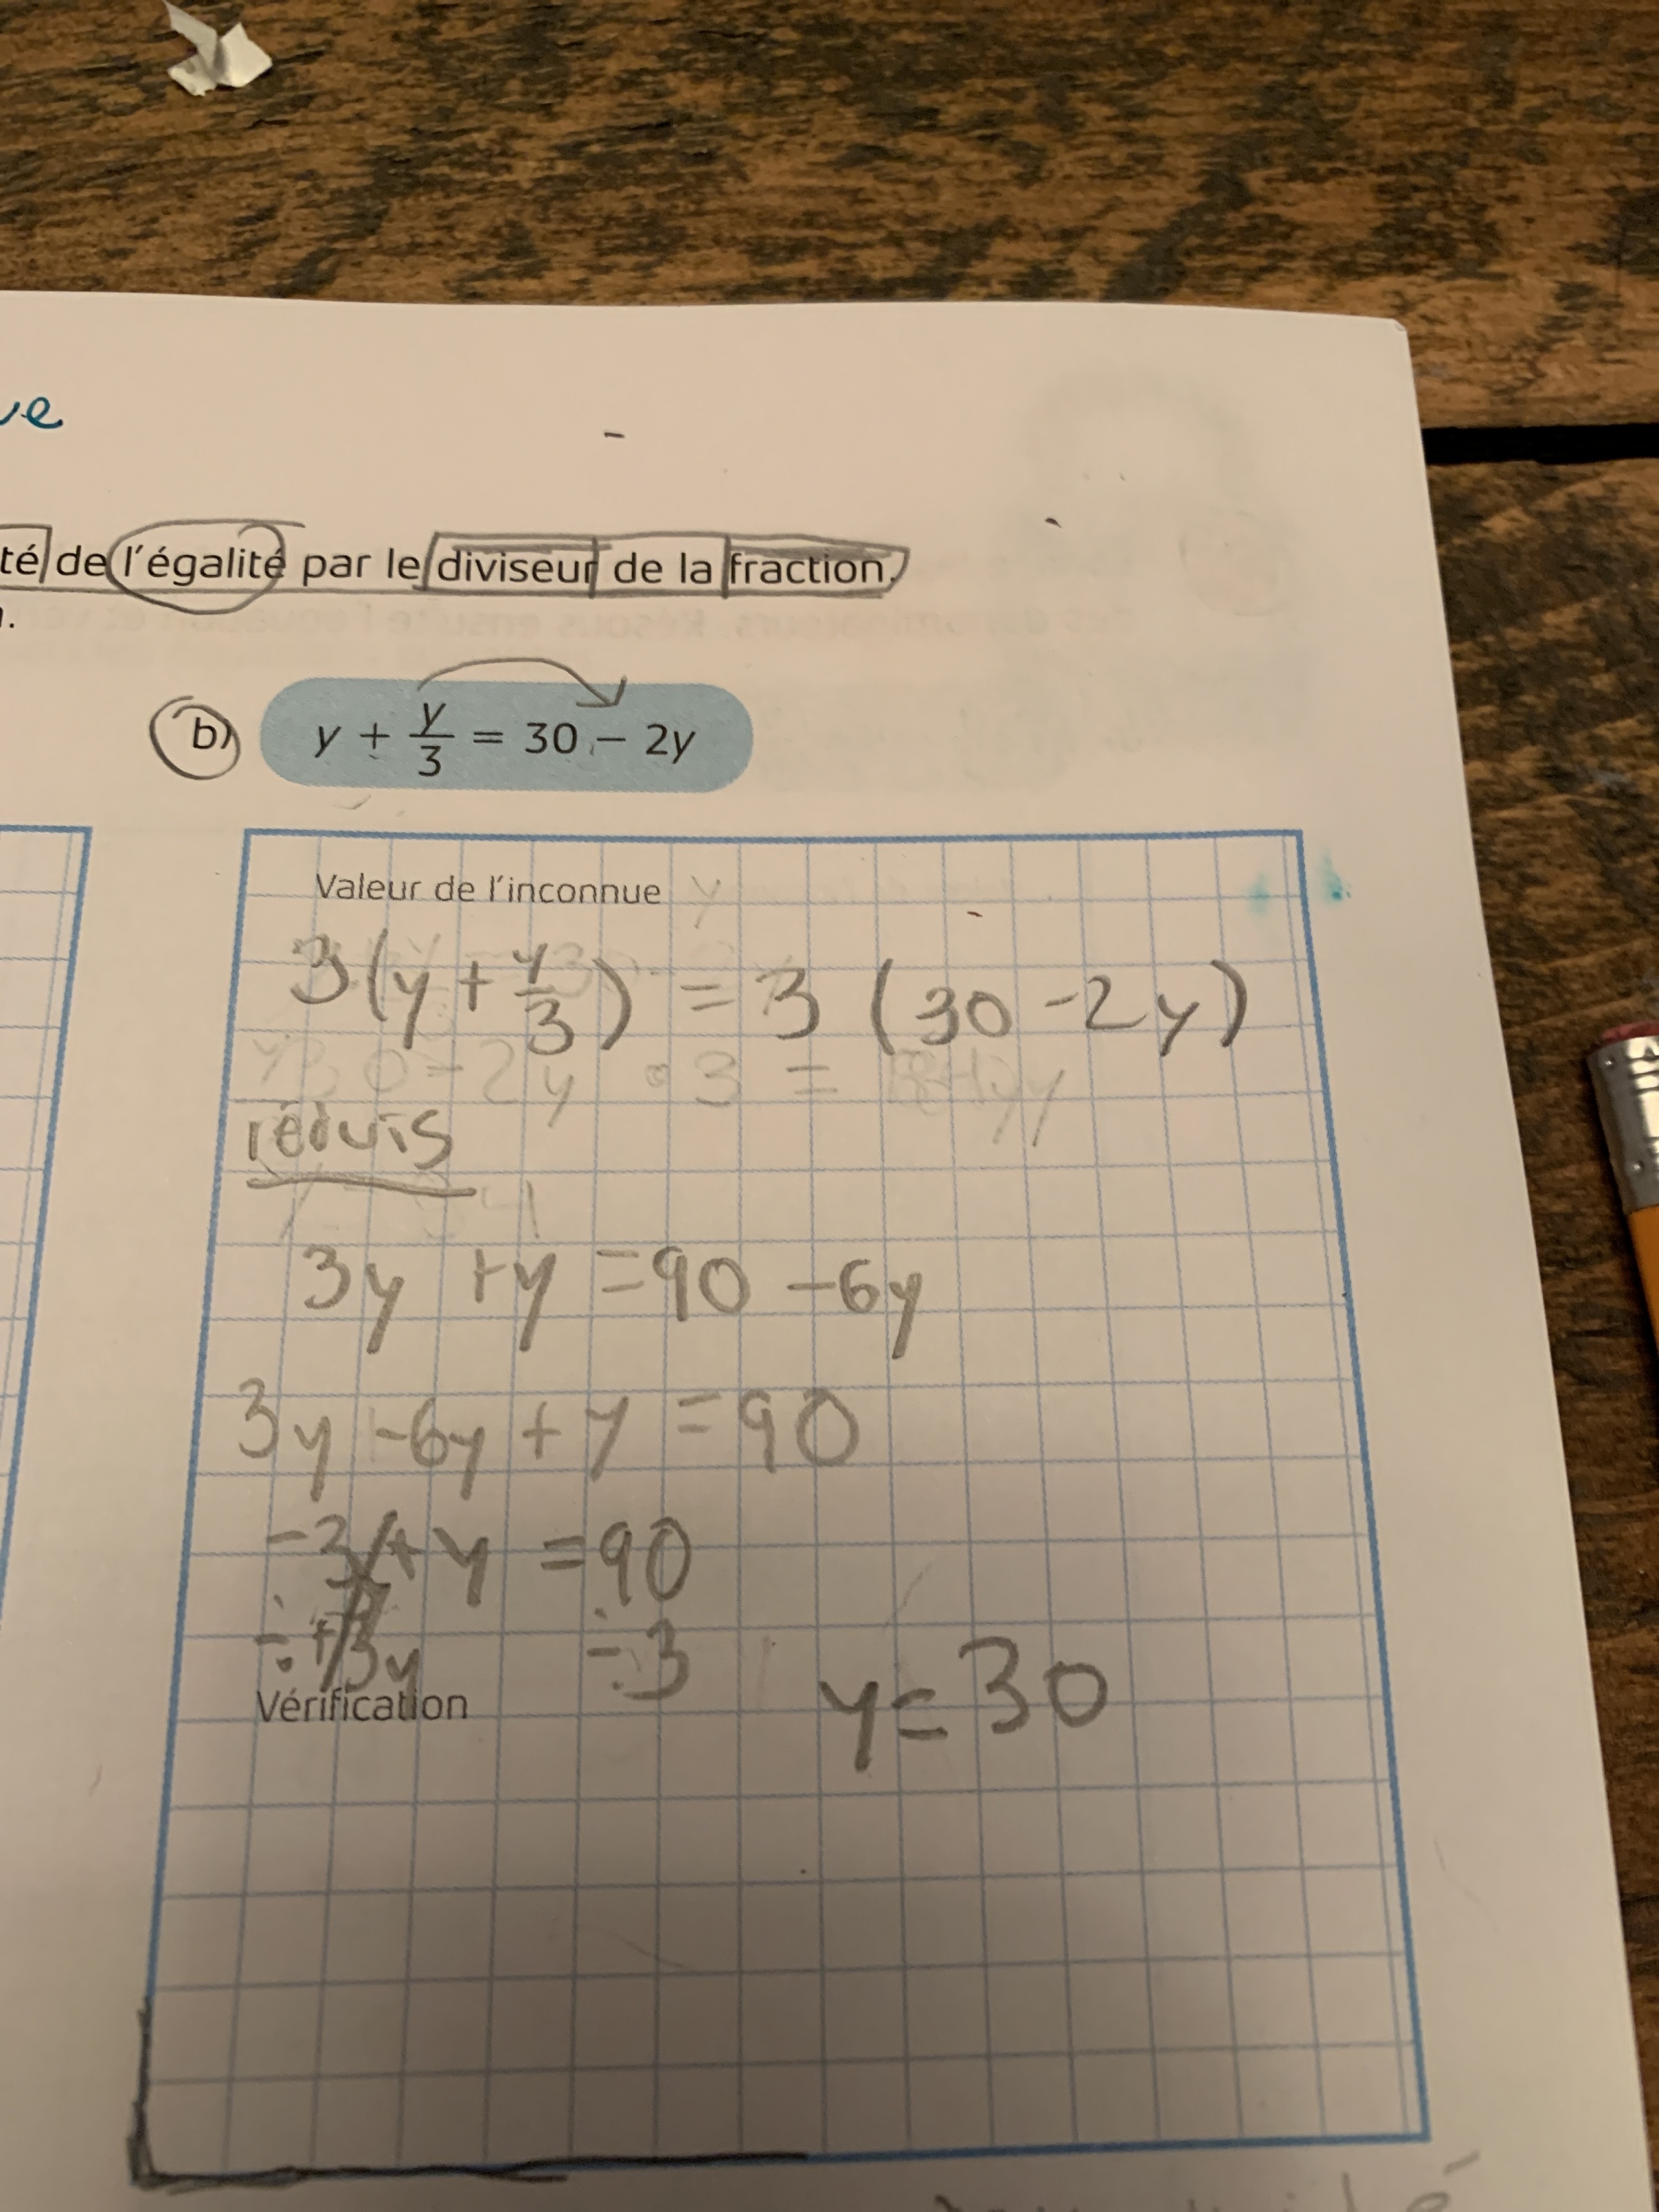 ve
té de l'égalité par le diviseur de la fraction.
b) y + y/3 = 30 - 2y
Valeur de l'inconnue y
3(y + y/3) = 3 (30 - 2y)
30 - 2y • 3 =
réduis
3y + y = 90 - 6y
3y - 6y + y = 90
-3y + y = 90
÷ +3y ÷ 3
y = 30
Vérification